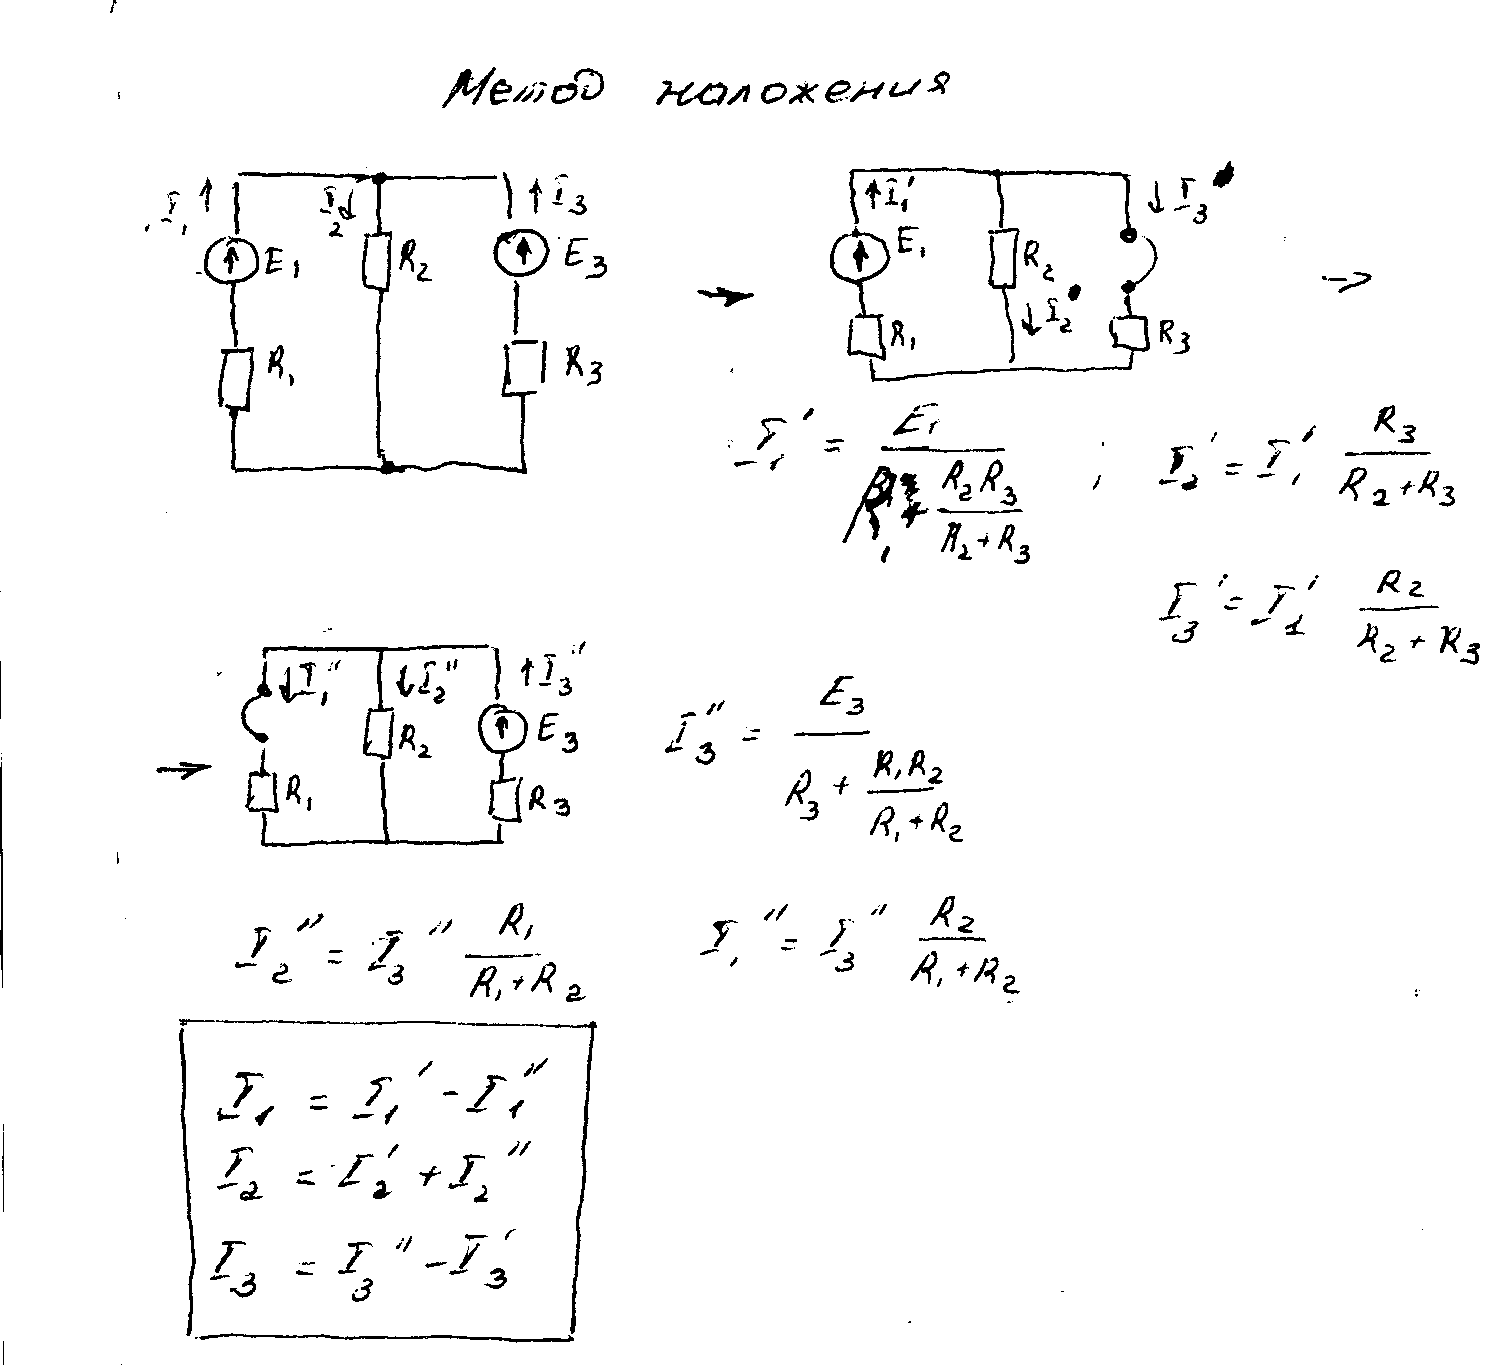 Метод наложения
I₁ I₂ I₃
E₁ R₂ E₃
R₁ R₃
I₁' I₃'
E₁ R₂
I₂'
R₁ R₃
I₁' = E₁ / (R₁ + R₂R₃ / (R₂+R₃)) ; I₂' = I₁' R₃ / (R₂+R₃)
I₃' = I₁' R₂ / (R₂+R₃)
I₁'' I₂'' I₃''
R₂ E₃
R₁ R₃
I₃'' = E₃ / (R₃ + R₁R₂ / (R₁+R₂))
I₂'' = I₃'' R₁ / (R₁+R₂) I₁'' = I₃'' R₂ / (R₁+R₂)
I₁ = I₁' - I₁''
I₂ = I₂' + I₂''
I₃ = I₃'' - I₃'